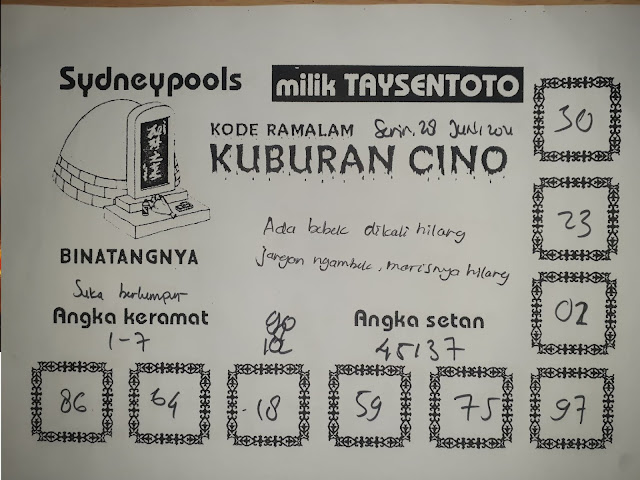 Sydneypools
milik TAYSENTOTO
KODE RAMALAM Senin, 28
KUBURAN CINO
30
23
02
Ada bebek dikali hilang
jangan ngambek, manisnya hilang
BINATANGNYA
Suka berlumpur
Angka keramat
1-7
Angka setan
45137
86
64
18
59
75
97